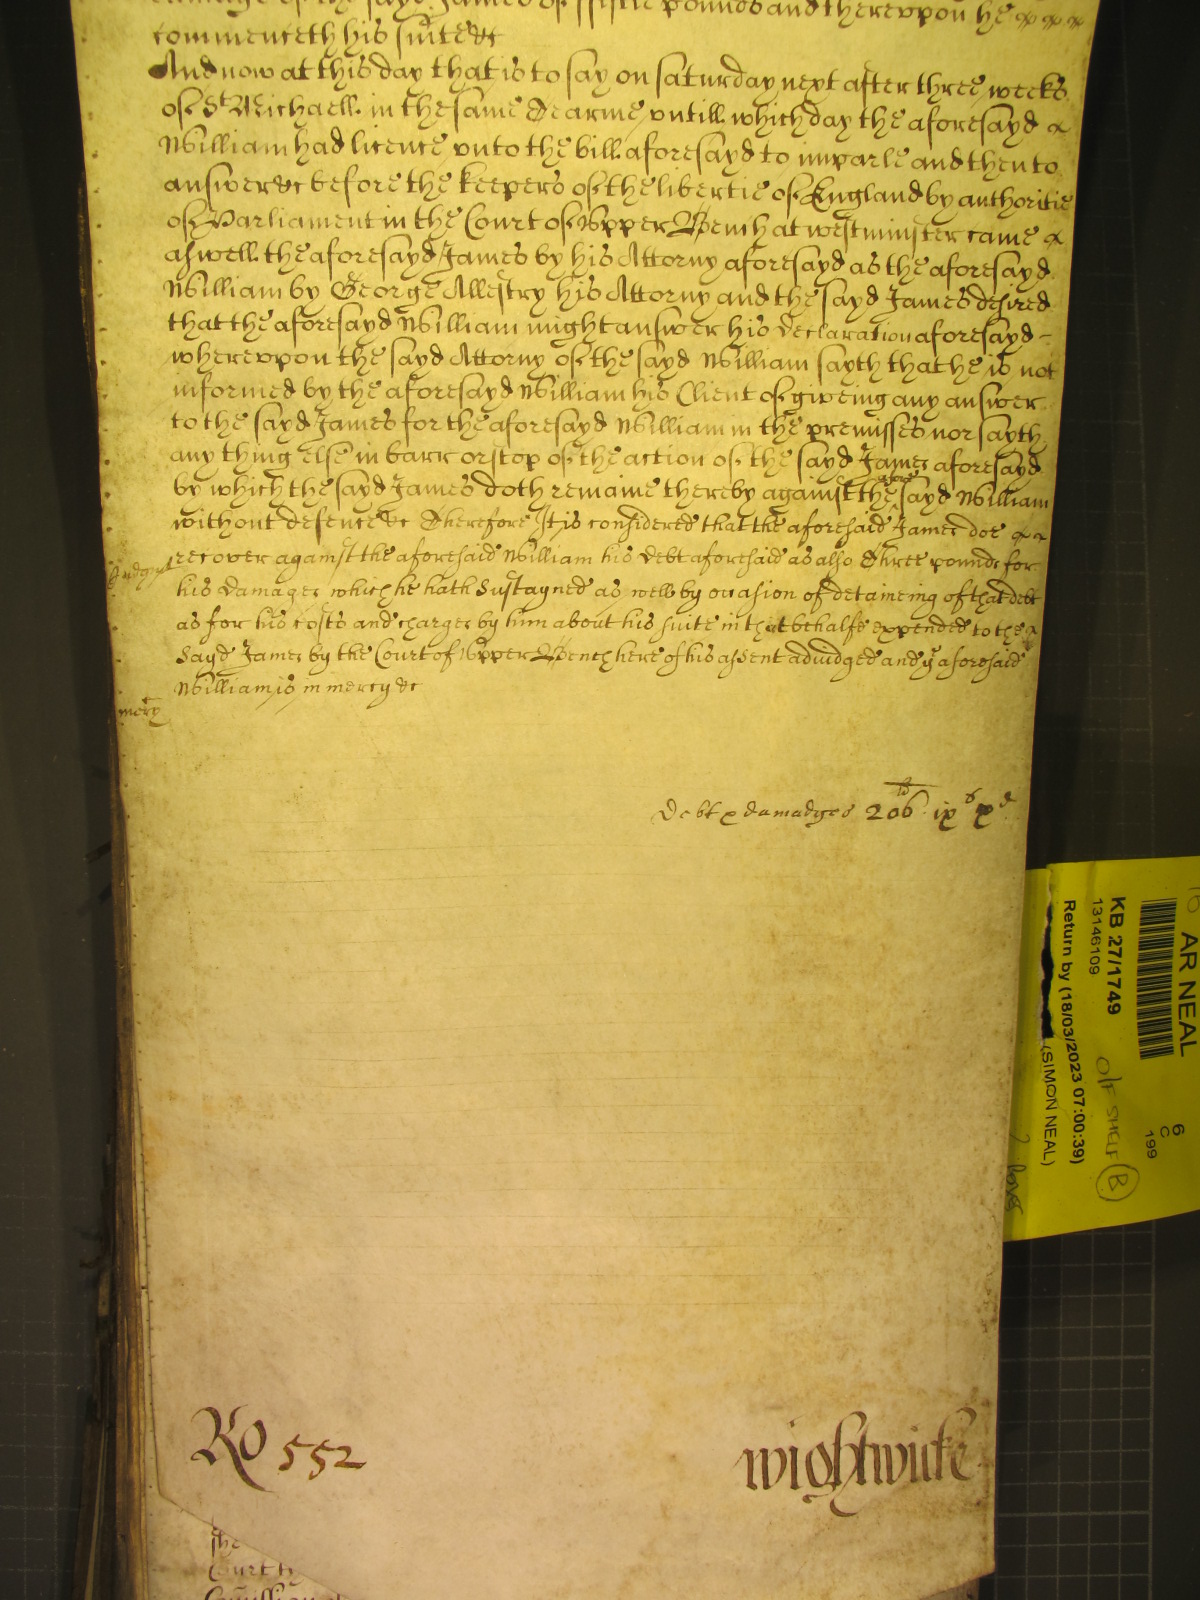 of the sayd James of fiftie pounds and thereuppon he
commenceth his suite &c
And now at this day that is to say on saturday next after three weeks
of St Michaell in the same Tearme untill which day the aforesayd
William had licence unto the bill aforesayd to imparle and then to
answer &c before the keepers of the libertie of England by authoritie
of Parliament in the Court of Upper Bench at westminster came
aswell the aforesayd James by his Attorny aforesayd as the aforesayd
William by George Allestry his Attorny and the sayd James desired
that the aforesayd William might answer his declaration aforesayd -
whereuppon the sayd Attorny of the sayd William sayth that he is not
informed by the aforesayd William his Client of giveing any answer
to the sayd James for the aforesayd William in the premisses nor sayth
any thing else in barr or stop of the action of the sayd James aforesayd
by which the sayd James doth remaine thereby against the afore sayd William
without defence &c Therefore It is considered that the aforesaid James doe
Judgmt recover against the aforesaid William his debt aforesaid as also Three pounds for
his damages which he hath Sustayned as well by occasion of detaineing of that debt
as for his costs and charges by him about his suite in that behalfe expended to the
Sayd James by the Court of Upper Bench here of his assent adiudged and ye aforesaid
William is in mercy &c
mercy
Debt & damadges 206 ix s x d
Ro 552
wightwicke
the
Court
AR NEAL
KB 27/1749
13146109
Return by (18/03/2023 07:00:39)
(SIMON NEAL)
O/F SHELF B
6
C
199